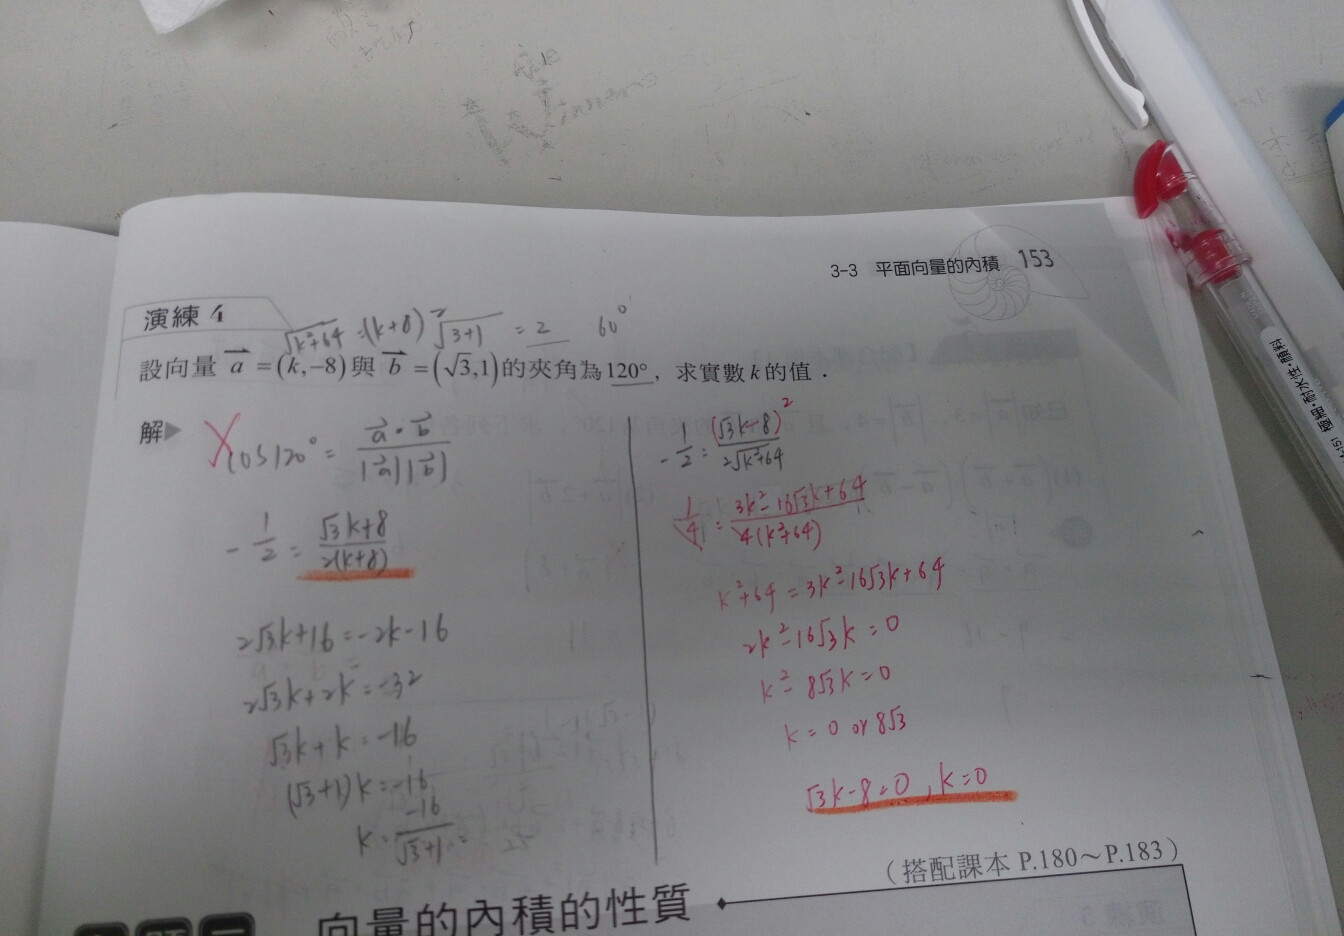 3-3 平面向量的內積 153
演練 4
√k²+64 =(k+8) ²√3+1 = 2 60°
設向量 a = (k,-8)與 b = (√3,1)的夾角為120°, 求實數k的值.
解▶
cos120° = a·b / |a||b|
-1/2 = √3k+8 / 2(k+8)
2√3k+16=-2k-16
2√3k+2k=-32
√3k+k=-16
(√3+1)k=-16
k= -16/√3+1 =
-1/2 = (√3k-8)² / 2√k²+64
1/4 = 3k²-16√3k+64 / 4(k²+64)
k²+64=3k²-16√3k+64
2k²-16√3k=0
k²-8√3k=0
k=0 or 8√3
√3k-8=0, k=0
(搭配課本 P.180~P.183)
向量的內積的性質